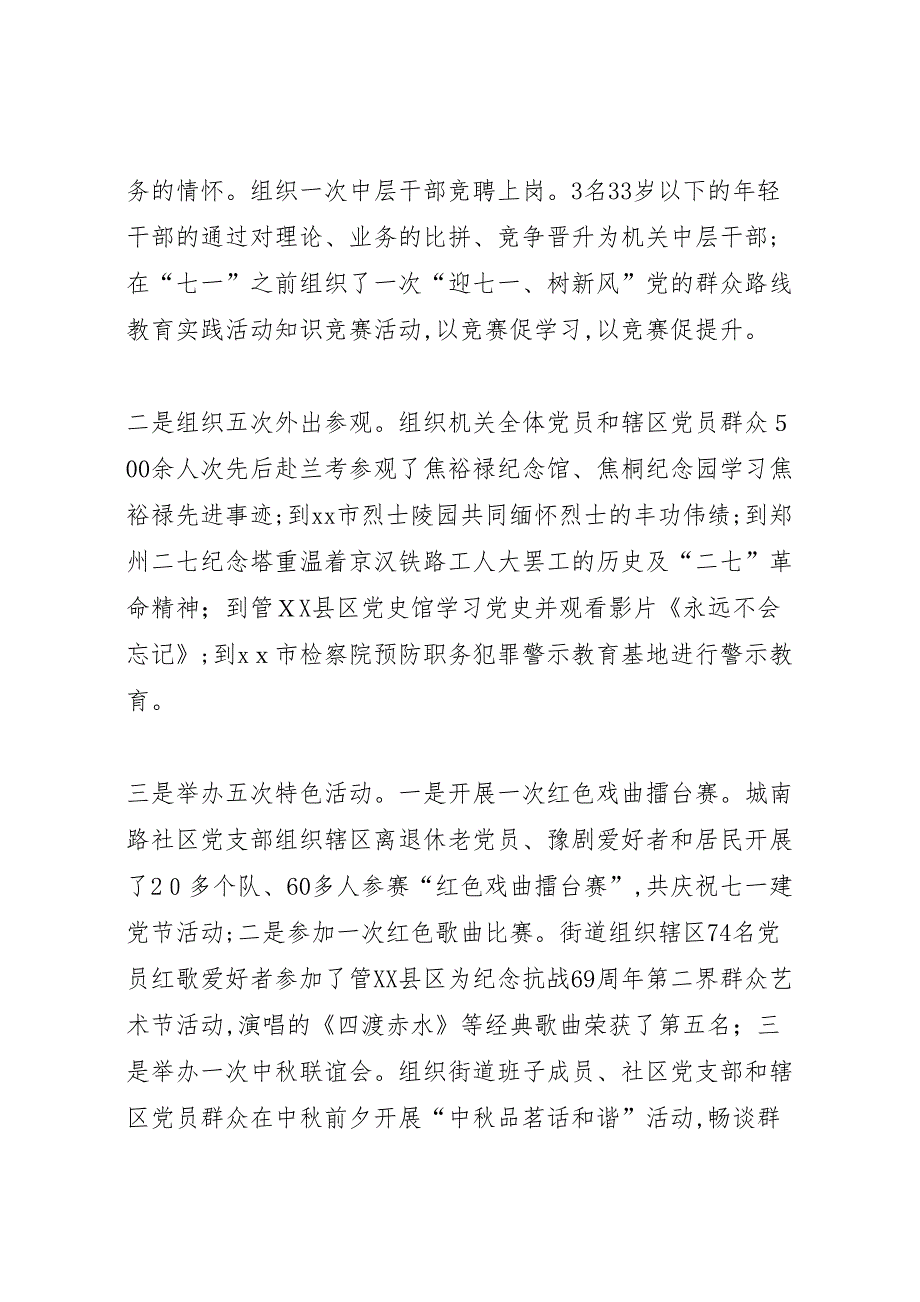 务的情怀。组织一次中层干部竞聘上岗。3名33岁以下的年轻
干部的通过对理论、业务的比拼、竞争晋升为机关中层干部;
在“七一”之前组织了一次“迎七一、树新风”党的群众路线
教育实践活动知识竞赛活动,以竞赛促学习,以竞赛促提升。
二是组织五次外出参观。组织机关全体党员和辖区党员群众5
00余人次先后赴兰考参观了焦裕禄纪念馆、焦桐纪念园学习焦
裕禄先进事迹;到xx市烈士陵园共同缅怀烈士的丰功伟绩;到郑
州二七纪念塔重温着京汉铁路工人大罢工的历史及“二七”革
命精神；到管XX县区党史馆学习党史并观看影片《永远不会
忘记》;到xｘ市检察院预防职务犯罪警示教育基地进行警示教
育。
三是举办五次特色活动。一是开展一次红色戏曲擂台赛。城南
路社区党支部组织辖区离退休老党员、豫剧爱好者和居民开展
了20多个队、60多人参赛“红色戏曲擂台赛”,共庆祝七一建
党节活动;二是参加一次红色歌曲比赛。街道组织辖区74名党
员红歌爱好者参加了管XX县区为纪念抗战69周年第二界群众艺
术节活动,演唱的《四渡赤水》等经典歌曲荣获了第五名；三
是举办一次中秋联谊会。组织街道班子成员、社区党支部和辖
区党员群众在中秋前夕开展“中秋品茗话和谐”活动,畅谈群